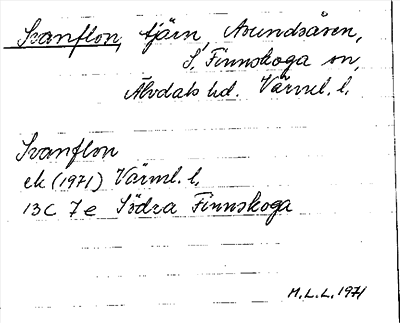 Svanflon, tjärn, Åsundsåsen,
S. Finnskoga sn,
Älvdals hd. Värml. l.
Svanflon
ek (1971) Värml. l.
13C 7e Södra Finnskoga
M.L.L. 1971